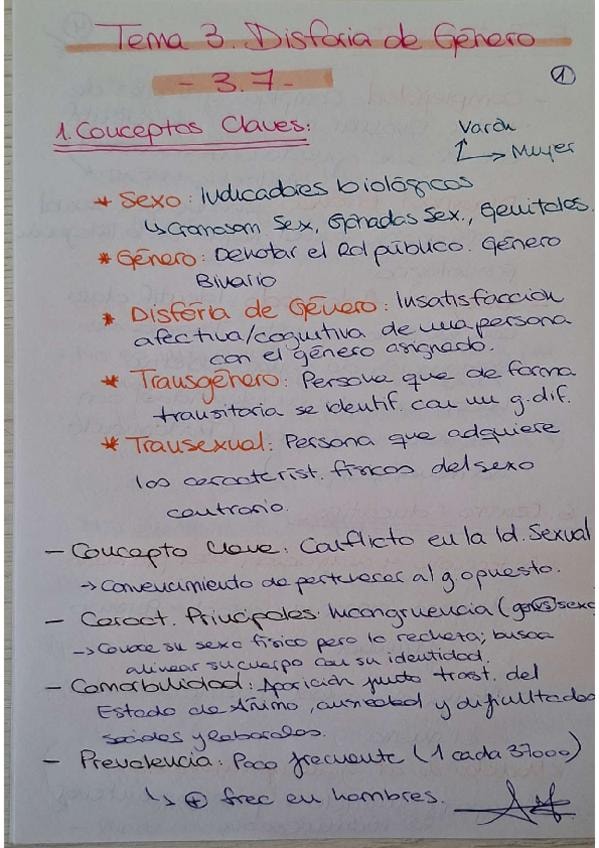 Tema 3. Disforia de Género
- 3.7 -
①
1. Conceptos Claves:
Varón
↳ Mujer
* Sexo: Indicadores biológicos
↳ Cromosom Sex, Gónadas Sex., Genitales.
* Género: Denotar el Rol público. Género
Binario
* Disforia de Género: Insatisfacción
afectiva/cognitiva de una persona
con el género asignado.
* Transgénero: Persona que de forma
transitoria se identif. con un g. dif.
* Transexual: Persona que adquiere
los caracterist. físicos del sexo
contrario.
- Concepto Clave: Conflicto en la Id. Sexual
→ Convencimiento de pertenecer al g. opuesto.
- Caract. Principales: Incongruencia (gen vs sexo
→ Conoce su sexo físico pero lo rechaza; busca
alinear su cuerpo con su identidad.
- Comorbilidad: Aparición junto trast. del
Estado de Ánimo, ansiedad y dificultades
sociales y laborales.
- Prevalencia: Poco frecuente (1 cada 37000)
↳ ⊕ frec en hombres.